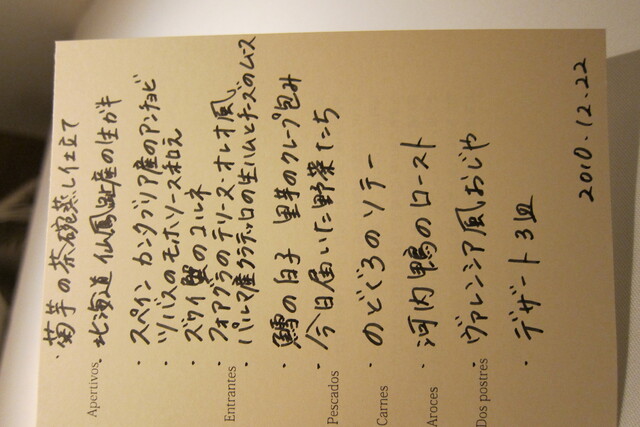 Apertivos
・菊芋の茶碗蒸し仕立て
・北海道 仙鳳趾産の生ガキ
・スペイン カンタブリア産のアンチョビ
・ツバスのモホソース和え
・ズワイ蟹のコルネ
・フォアグラのテリーヌ・オレオ風
・パルマ産クラテッロの生ハムとチーズのムース
Entrantes
・鱈の白子 里芋のクレープ包み
・今日届いた野菜たち
Pescados
・のどぐろのソテー
Carnes
・河内鴨のロースト
Aroces
・ヴァレンシア風おじや
Dos postres
・デザート3皿
2010.12.22